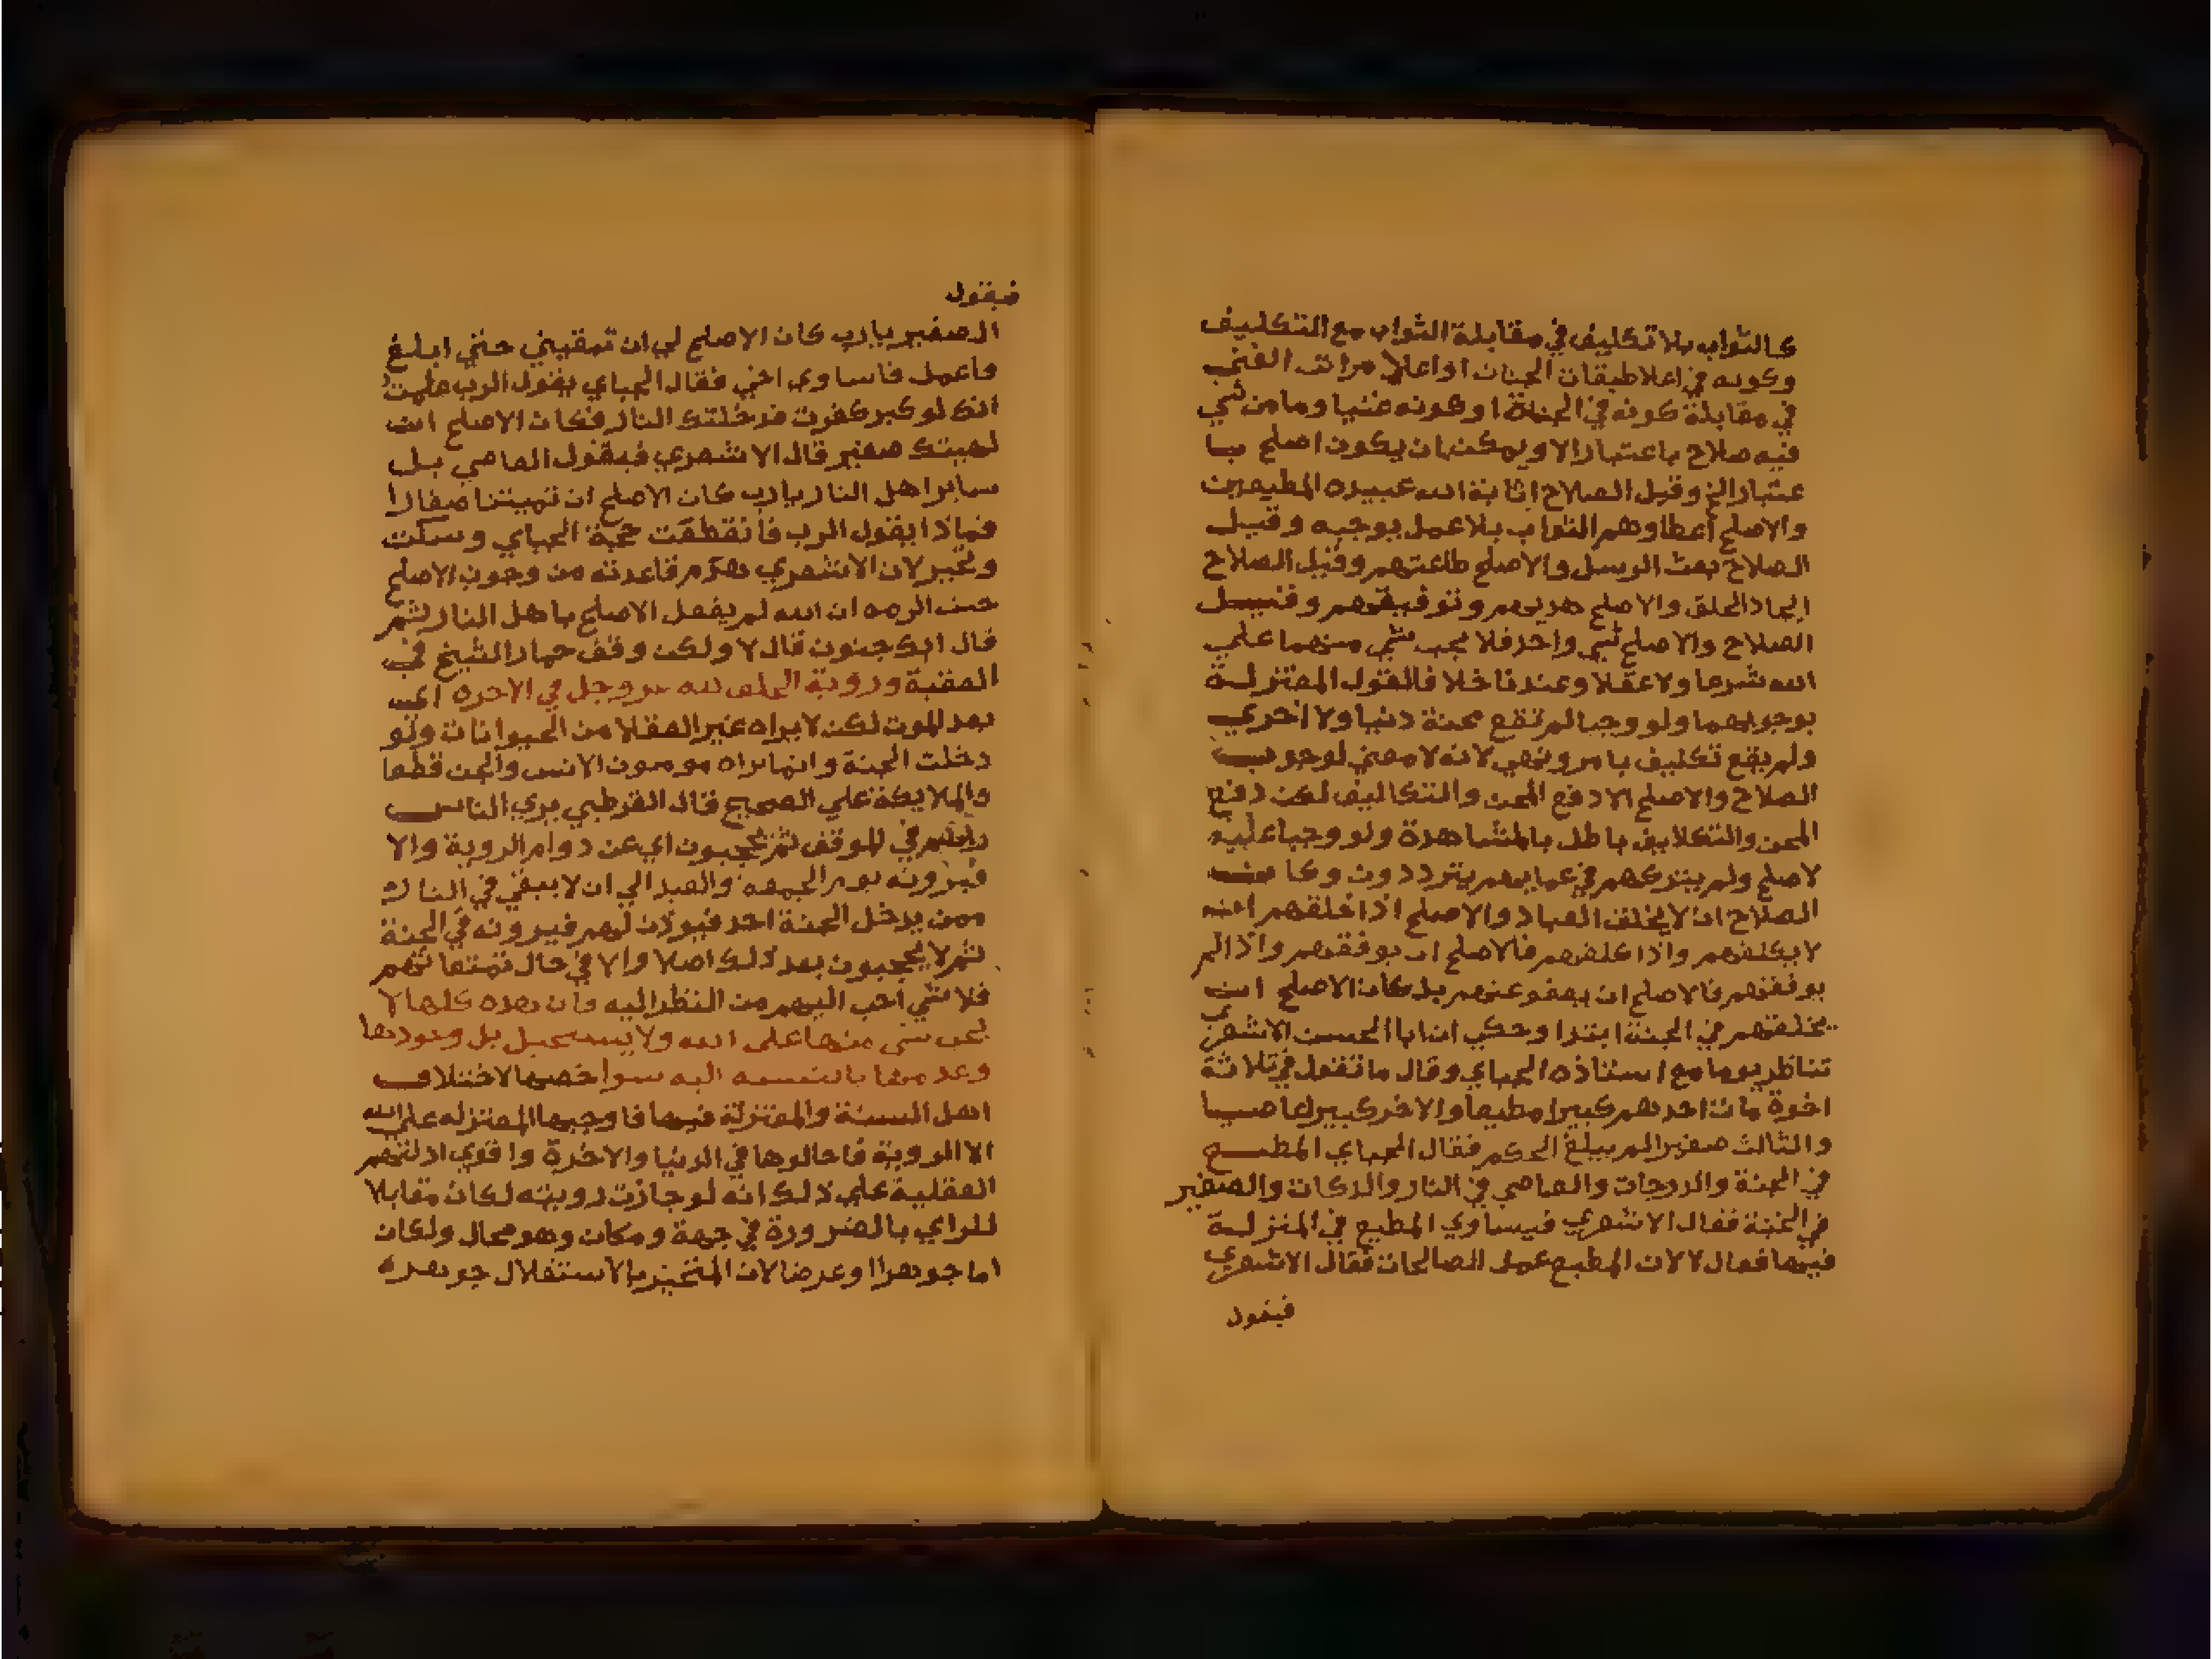 كالثواب بلا تكليف في مقابلة الثواب مع التكليف
وكونه في اعلا طبقات الجنان او اعلا مراتب الغني
في مقابلة كونه في الجنة او كونه غنيا وما من شي
فيه صلاح باعتبار الا ويمكن ان يكون اصلح با
عتبار الخ وقيل الصلاح اثابة الله عبيده المطيعين
والاصلح أعطاوهم الثواب بلا عمل يوجبه وقيل
الصلاح بعث الرسل والاصلح طاعتهم وقيل الصلاح
ايجاد الخلق والاصلح هديهم وتوفيقهم وقيل
الصلاح والاصلح شي واحد فلا يجب شي منهما علي
الله شرعا ولا عقلا وعندنا خلافا لقول المعتزلة
بوجوبهما ولو وجبا لم تقع محنة دنيا ولا اخري
ولم يقع تكليف بامر ونهي لانه لا معني لوجوب
الصلاح والاصلح الا دفع المحن والتكاليف لكن دفع
المحن والتكلايف باطل بالمشاهدة ولو وجبا عليه
لاصلح ولم يتركهم في عمايهم يترددون وكا
الصلاح ان لا يخلق العباد والاصلح اذا خلقهم ان
لا يكلفهم واذا كلفهم فالاصلح ان يوفقهم واذا لم
يوفقهم فالاصلح ان يعفو عنهم بل كان الاصلح ان
يخلقهم في الجنة ابتدا وحكي ان ابا الحسن الاشعري
تناظر يوما مع استاذه الجباي وقال ما تفعل في ثلاثة
اخوة مات احدهم كبيرا مطيعا والاخر كبيرا عاصيا
والثالث صغيرا لم يبلغ الحكم فقال الجباي المطيع
في الجنة والدرجات والعاصي في النار والدركات والصغير
في الجنة فقال الاشعري فيساوي المطيع في المنزلة
فيها فقال لا لان المطيع عمل الصالحات فقال الاشعري
فيقول
فيقول
الصغير يا رب كان الاصلح لي ان تبقيني حتي ابلغ
واعمل فاساوي اخي فقال الجباي يقول الرب علمت
انك لو كبر كفرت فدخلتك النار فكان الاصلح ان
نميتك صغير قال الاشعري فيقول العاصي بل
ساير اهل النار يا رب كان الاصلح ان تميتنا صغارا
فماذا يقول الرب فانقطعت حجة الجباي وسكت
وتحير لان الاشعري هدم قاعدته من وجوب الاصلح
حيث الزمه ان الله لم يفعل الاصلح باهل النار ثم
قال ابك جنون قال لا ولكن وقف حمار الشيخ في
العقبة ورؤية الخلق لله عز وجل في الاخره اي
بعد الموت لكن لا يراه غير العقلا من الحيوانات ولو
دخلت الجنة وانما يراه مومنون الانس والجن قطعا
والملايكة علي الصحيح قال القرطبي يري الناس
ربهم في الموقف ثم يحجبون اي عن دوام الروية والا
فيرونه يوم الجمعه والعيد الي ان لا يبقي في النار
ممن يدخل الجنة احد فيوذن لهم فيرونه في الجنة
ثم لا يحجبون بعد ذلك اصلا والا في حال تمتعاتهم
فلا شي احب اليهم من النظر اليه فان هذه كلها لا
يجب شي منها على الله ولا يستحيل بل وجودها
وعدمها بالنسبه اليه سوا خصها لاختلاف
اهل السنة والمعتزلة فيها فاوجبها المعتزله علي الله
الا الروية فاحالوها في الدنيا والاخرة واقوي ادلتهم
العقلية علي ذلك انه لو جازت رويته لكان مقابلا
للراي بالضرورة في جهة ومكان وهو محال ولكان
اما جوهرا او عرضا لان المتحيز بالاستقلال جوهره